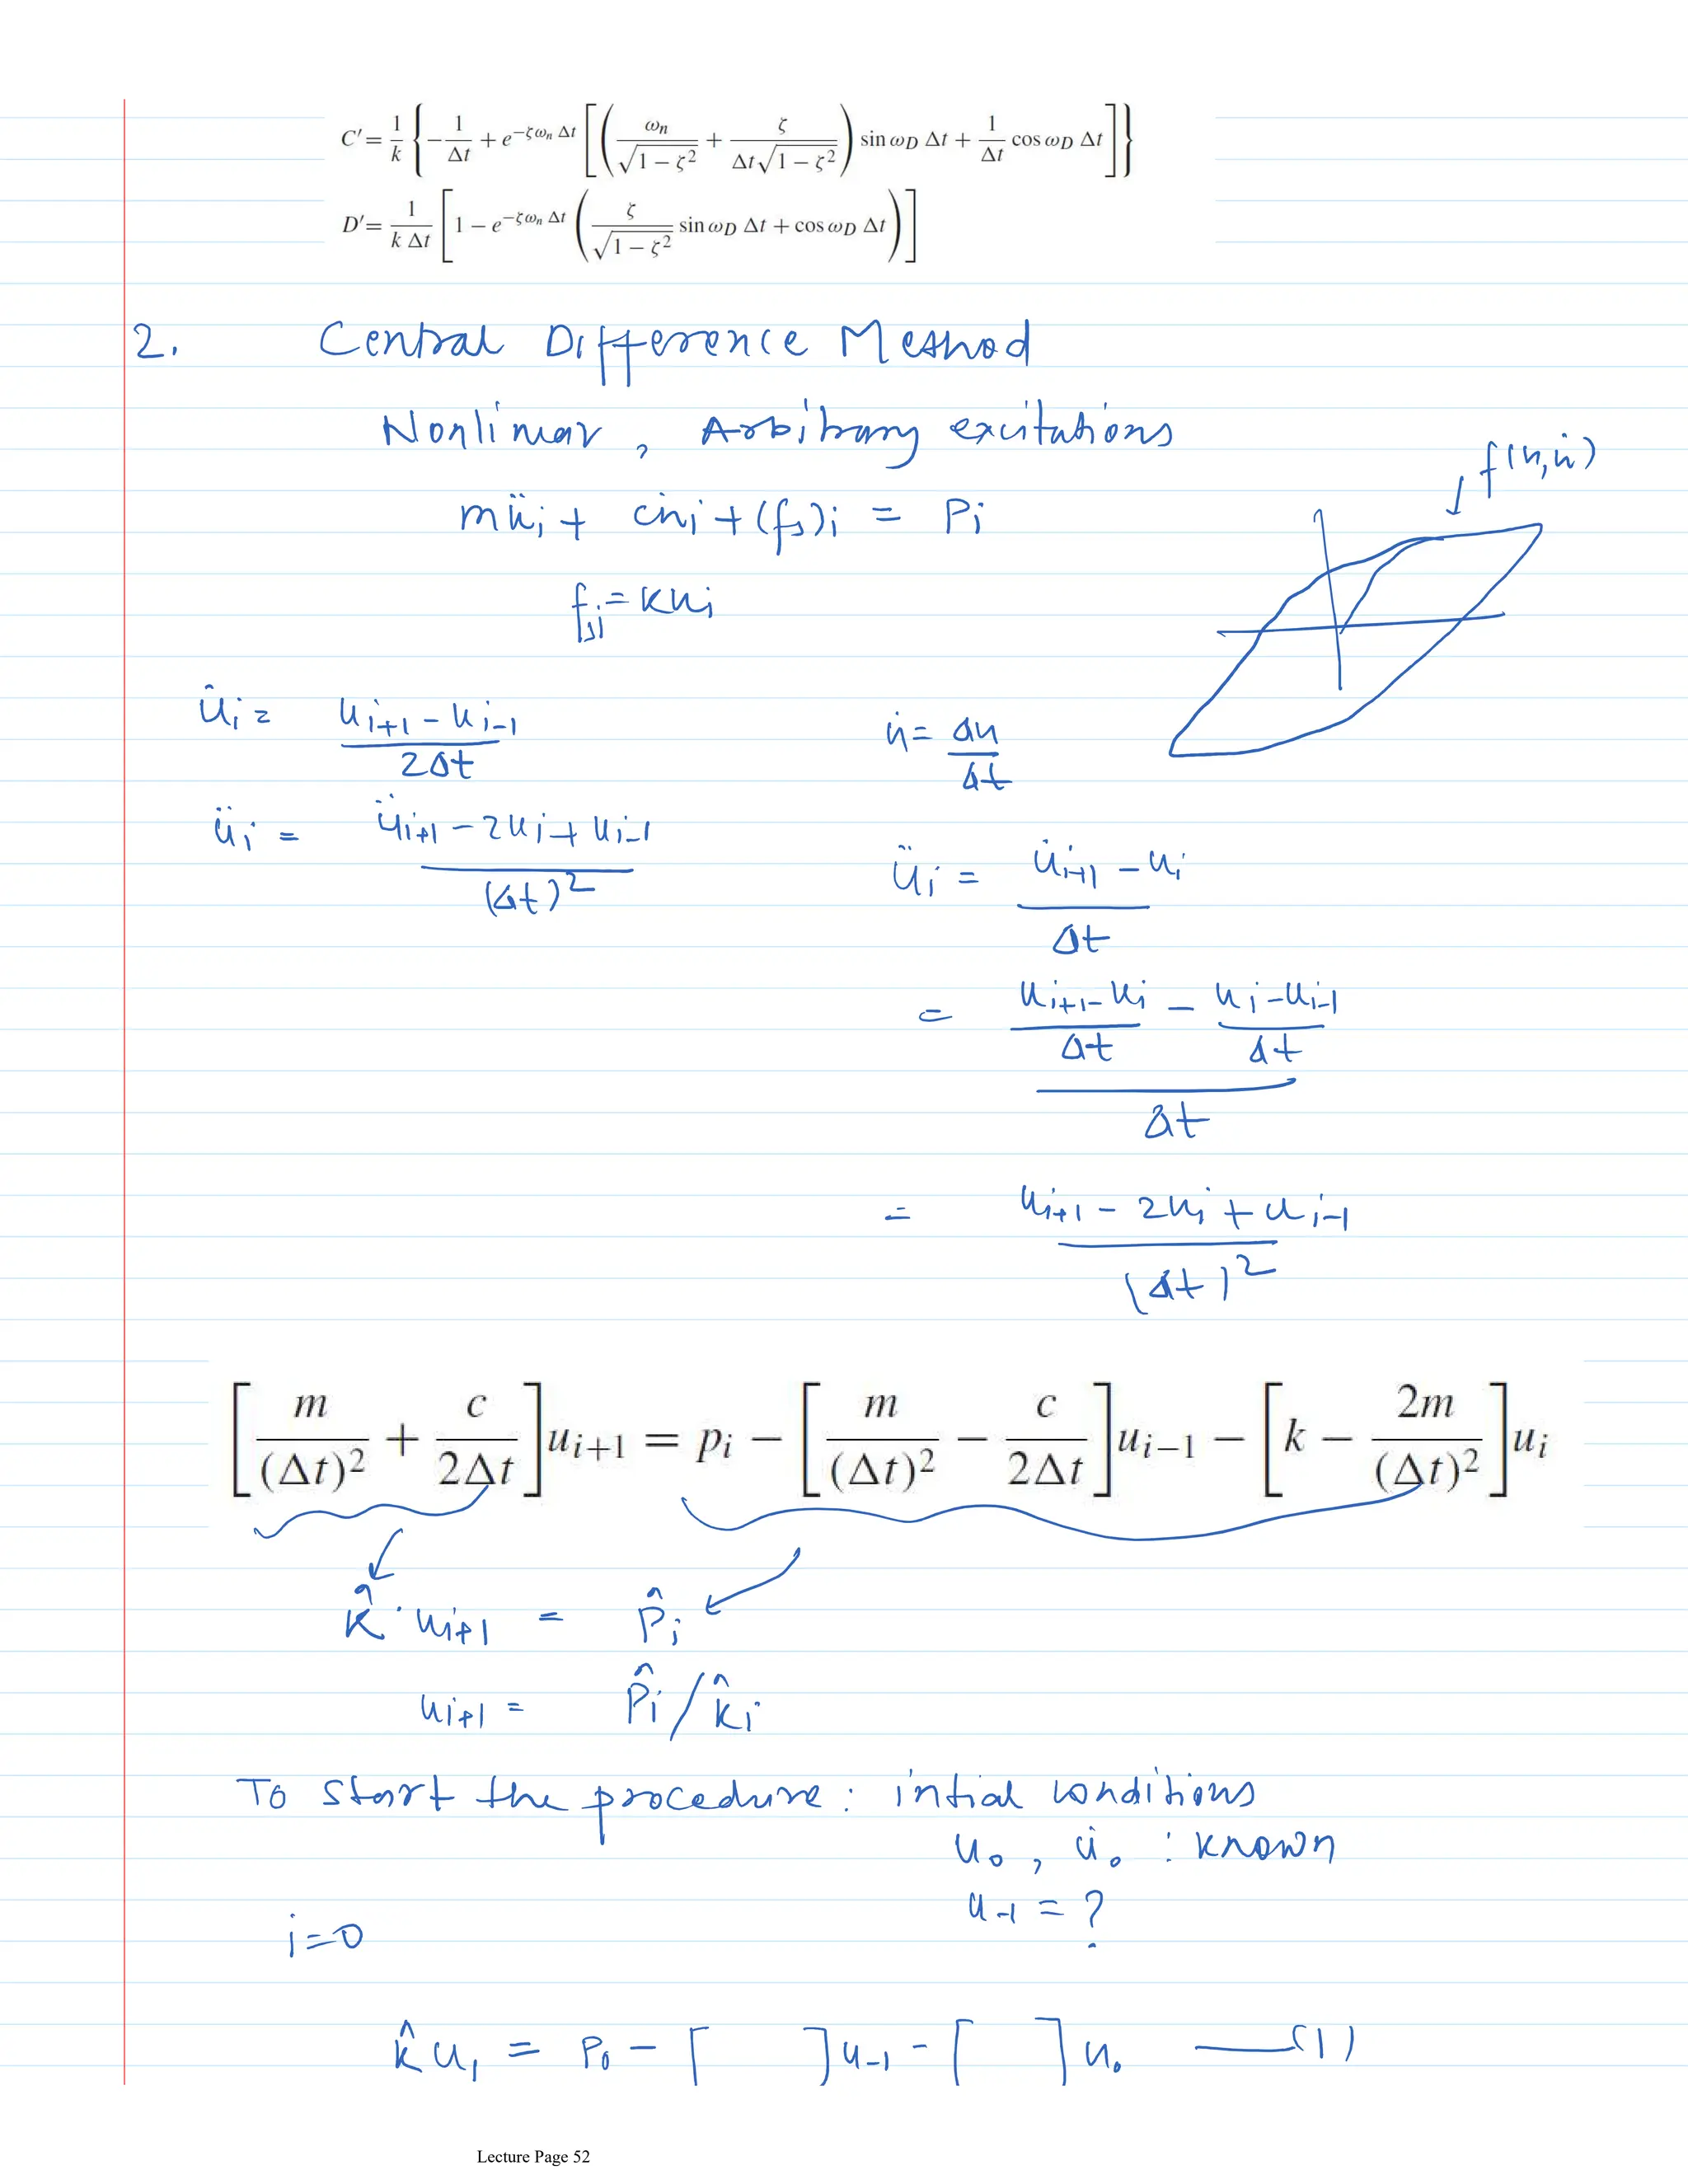 C′ = 1/k { −1/Δt + e^{−ζω_n Δt} [ ( ω_n/√(1 − ζ²) + ζ/(Δt√(1 − ζ²)) ) sin ω_D Δt + 1/Δt cos ω_D Δt ] }
D′ = 1/(k Δt) [ 1 − e^{−ζω_n Δt} ( ζ/√(1 − ζ²) sin ω_D Δt + cos ω_D Δt ) ]
2. Central Difference Method
Nonlinear, Arbitrary excitations
f(u,u̇)
mü_i + cu̇_i + (f_s)_i = P_i
f_{si} = ku_i
u̇_i = (u_{i+1} − u_{i−1})/(2Δt)
u̇ = Δu/Δt
ü_i = (ü_{i+1} − 2u_i + u_{i−1})/(Δt)²
ü_i = (u̇_{i+1} − u̇_i)/Δt
= ((u_{i+1} − u_i)/Δt − (u_i − u_{i−1})/Δt)/Δt
= (u_{i+1} − 2u_i + u_{i−1})/(Δt)²
[ m/(Δt)² + c/(2Δt) ] u_{i+1} = p_i − [ m/(Δt)² − c/(2Δt) ] u_{i−1} − [ k − 2m/(Δt)² ] u_i
k̂ · u_{i+1} = P̂_i
u_{i+1} = P̂_i / k̂_i
To start the procedure: intial conditions
u_0, u̇_0 : known
u_{−1} = ?
i=0
k̂ u_1 = P_0 − [ ] u_{−1} − [ ] u_0 —(1)
Lecture Page 52